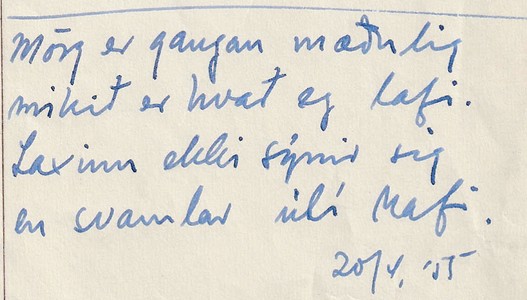 Mörg er gangan mæðulig
mikið er hvað eg lafi.
Laxinn ekki sýnir sig
en svamlar útí hafi.
20/4, '55